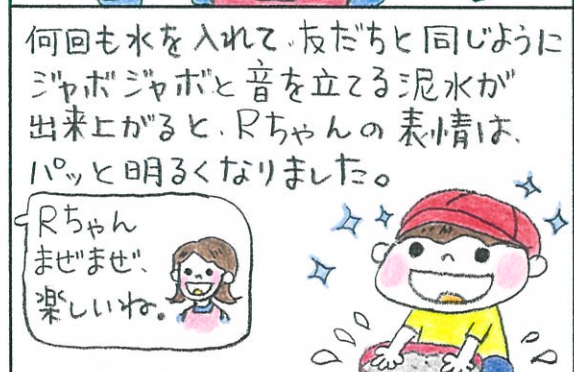 何回も水を入れて、友だちと同じように
ジャボジャボと音を立てる泥水が
出来上がると、Rちゃんの表情は、
パッと明るくなりました。
Rちゃん
まぜまぜ、
楽しいね。